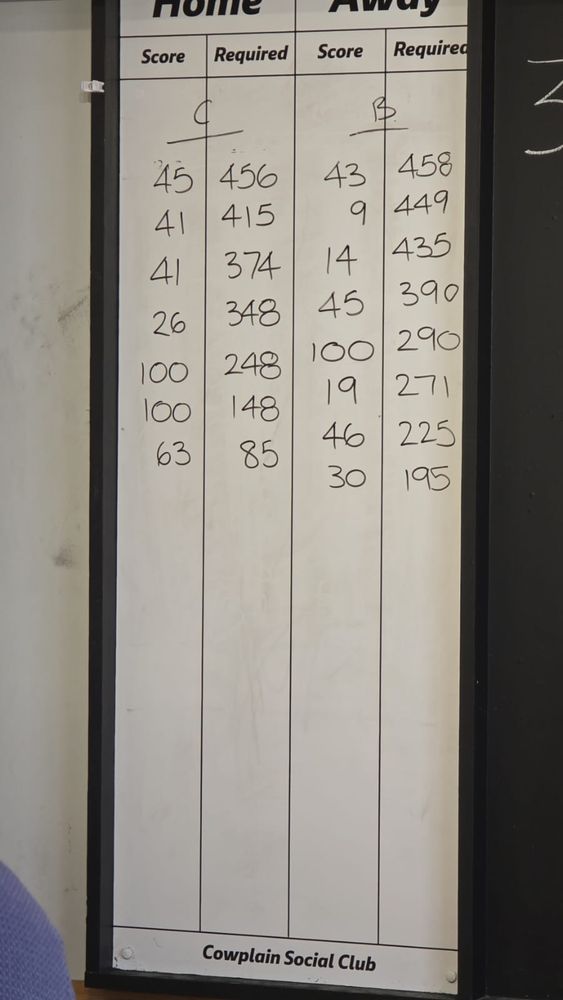 Home Away
Score Required Score Required
C B
45 456 43 458
41 415 9 449
41 374 14 435
26 348 45 390
100 248 100 290
100 148 19 271
63 85 46 225
30 195
Cowplain Social Club